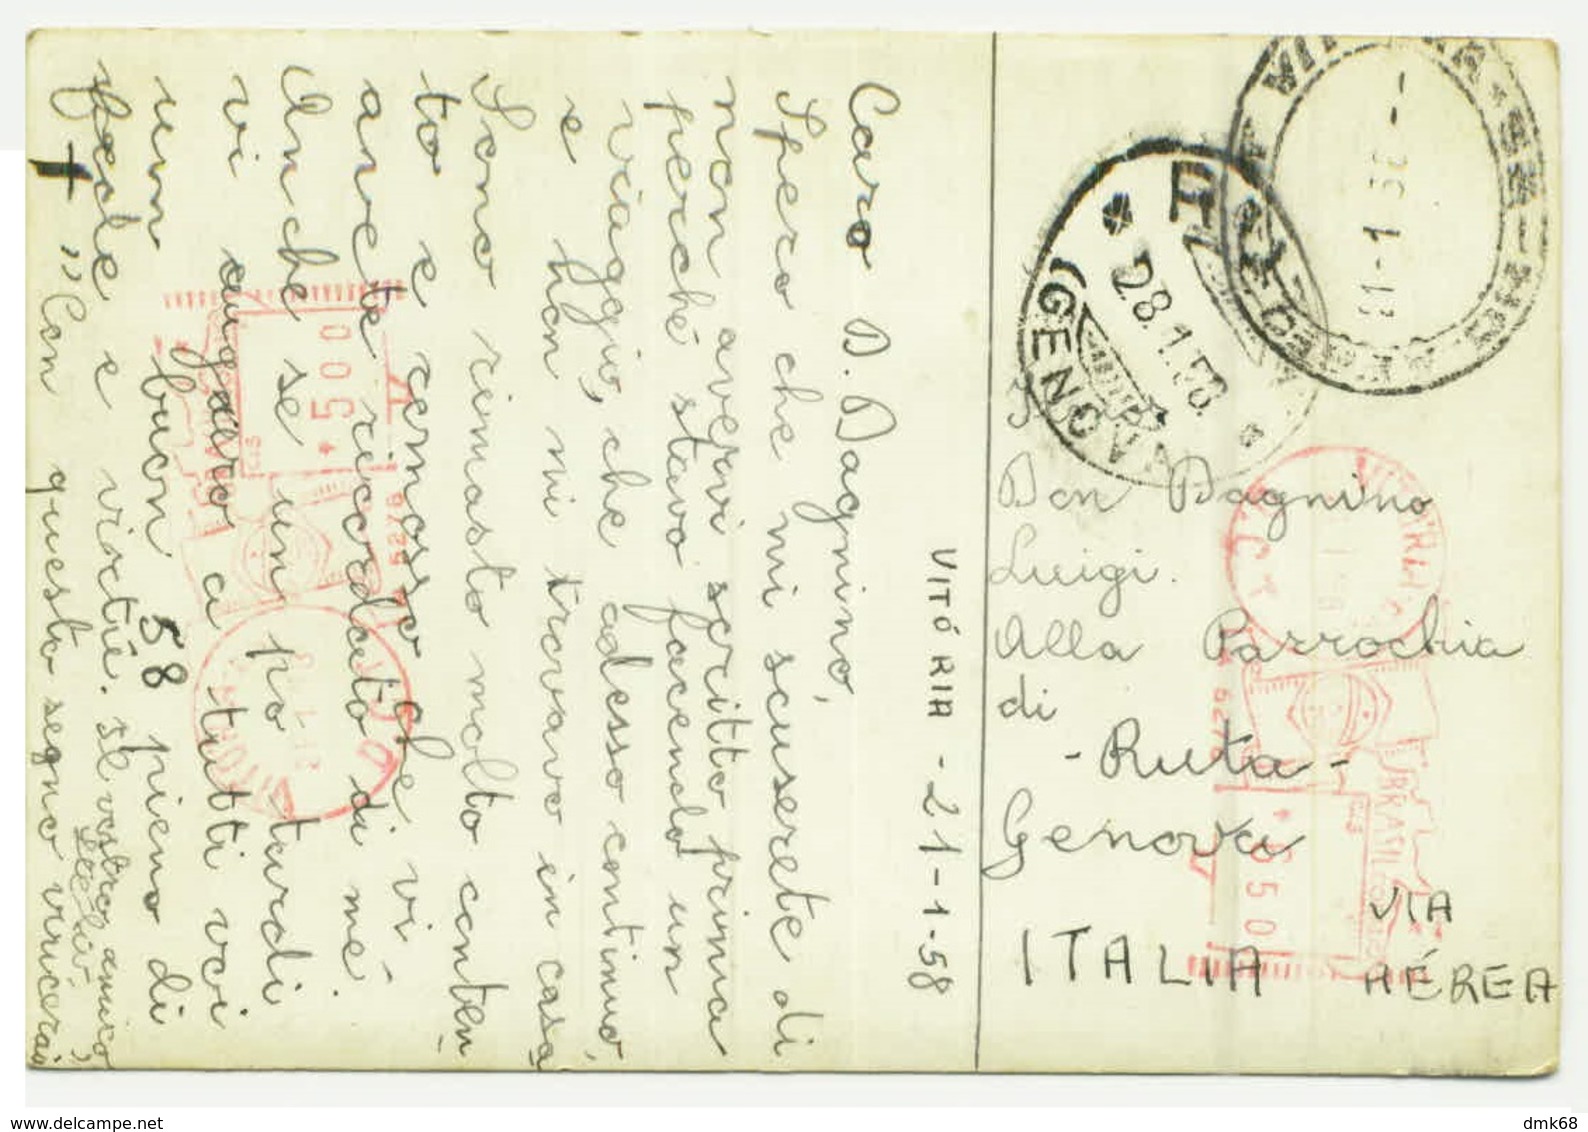 VITÓRIA - 21-1-58
Caro D. Dagnino,
Spero che mi scuserete di
non avervi scritto prima
perché stavo facendo un
viaggio, che adesso continuo,
e non mi trovavo in casa
Sono rimasto molto conten
to e comosso che vi
avete ricordato di me.
Anche se un po tardi
vi auguro a tutti voi
un buon 58 pieno di
fede e virtù. Il vostro amico
+ "Con questo segno vincerai"
Don Dagnino
Luigi.
Alla Parrochia
di
- Ruta -
Genova
ITALIA
VIA
AÉREA
28.1.58.
(GENOVA)
21-1-58
BRASIL
500
5276
BRASIL
650
5276
www.delcampe.net
dmk68